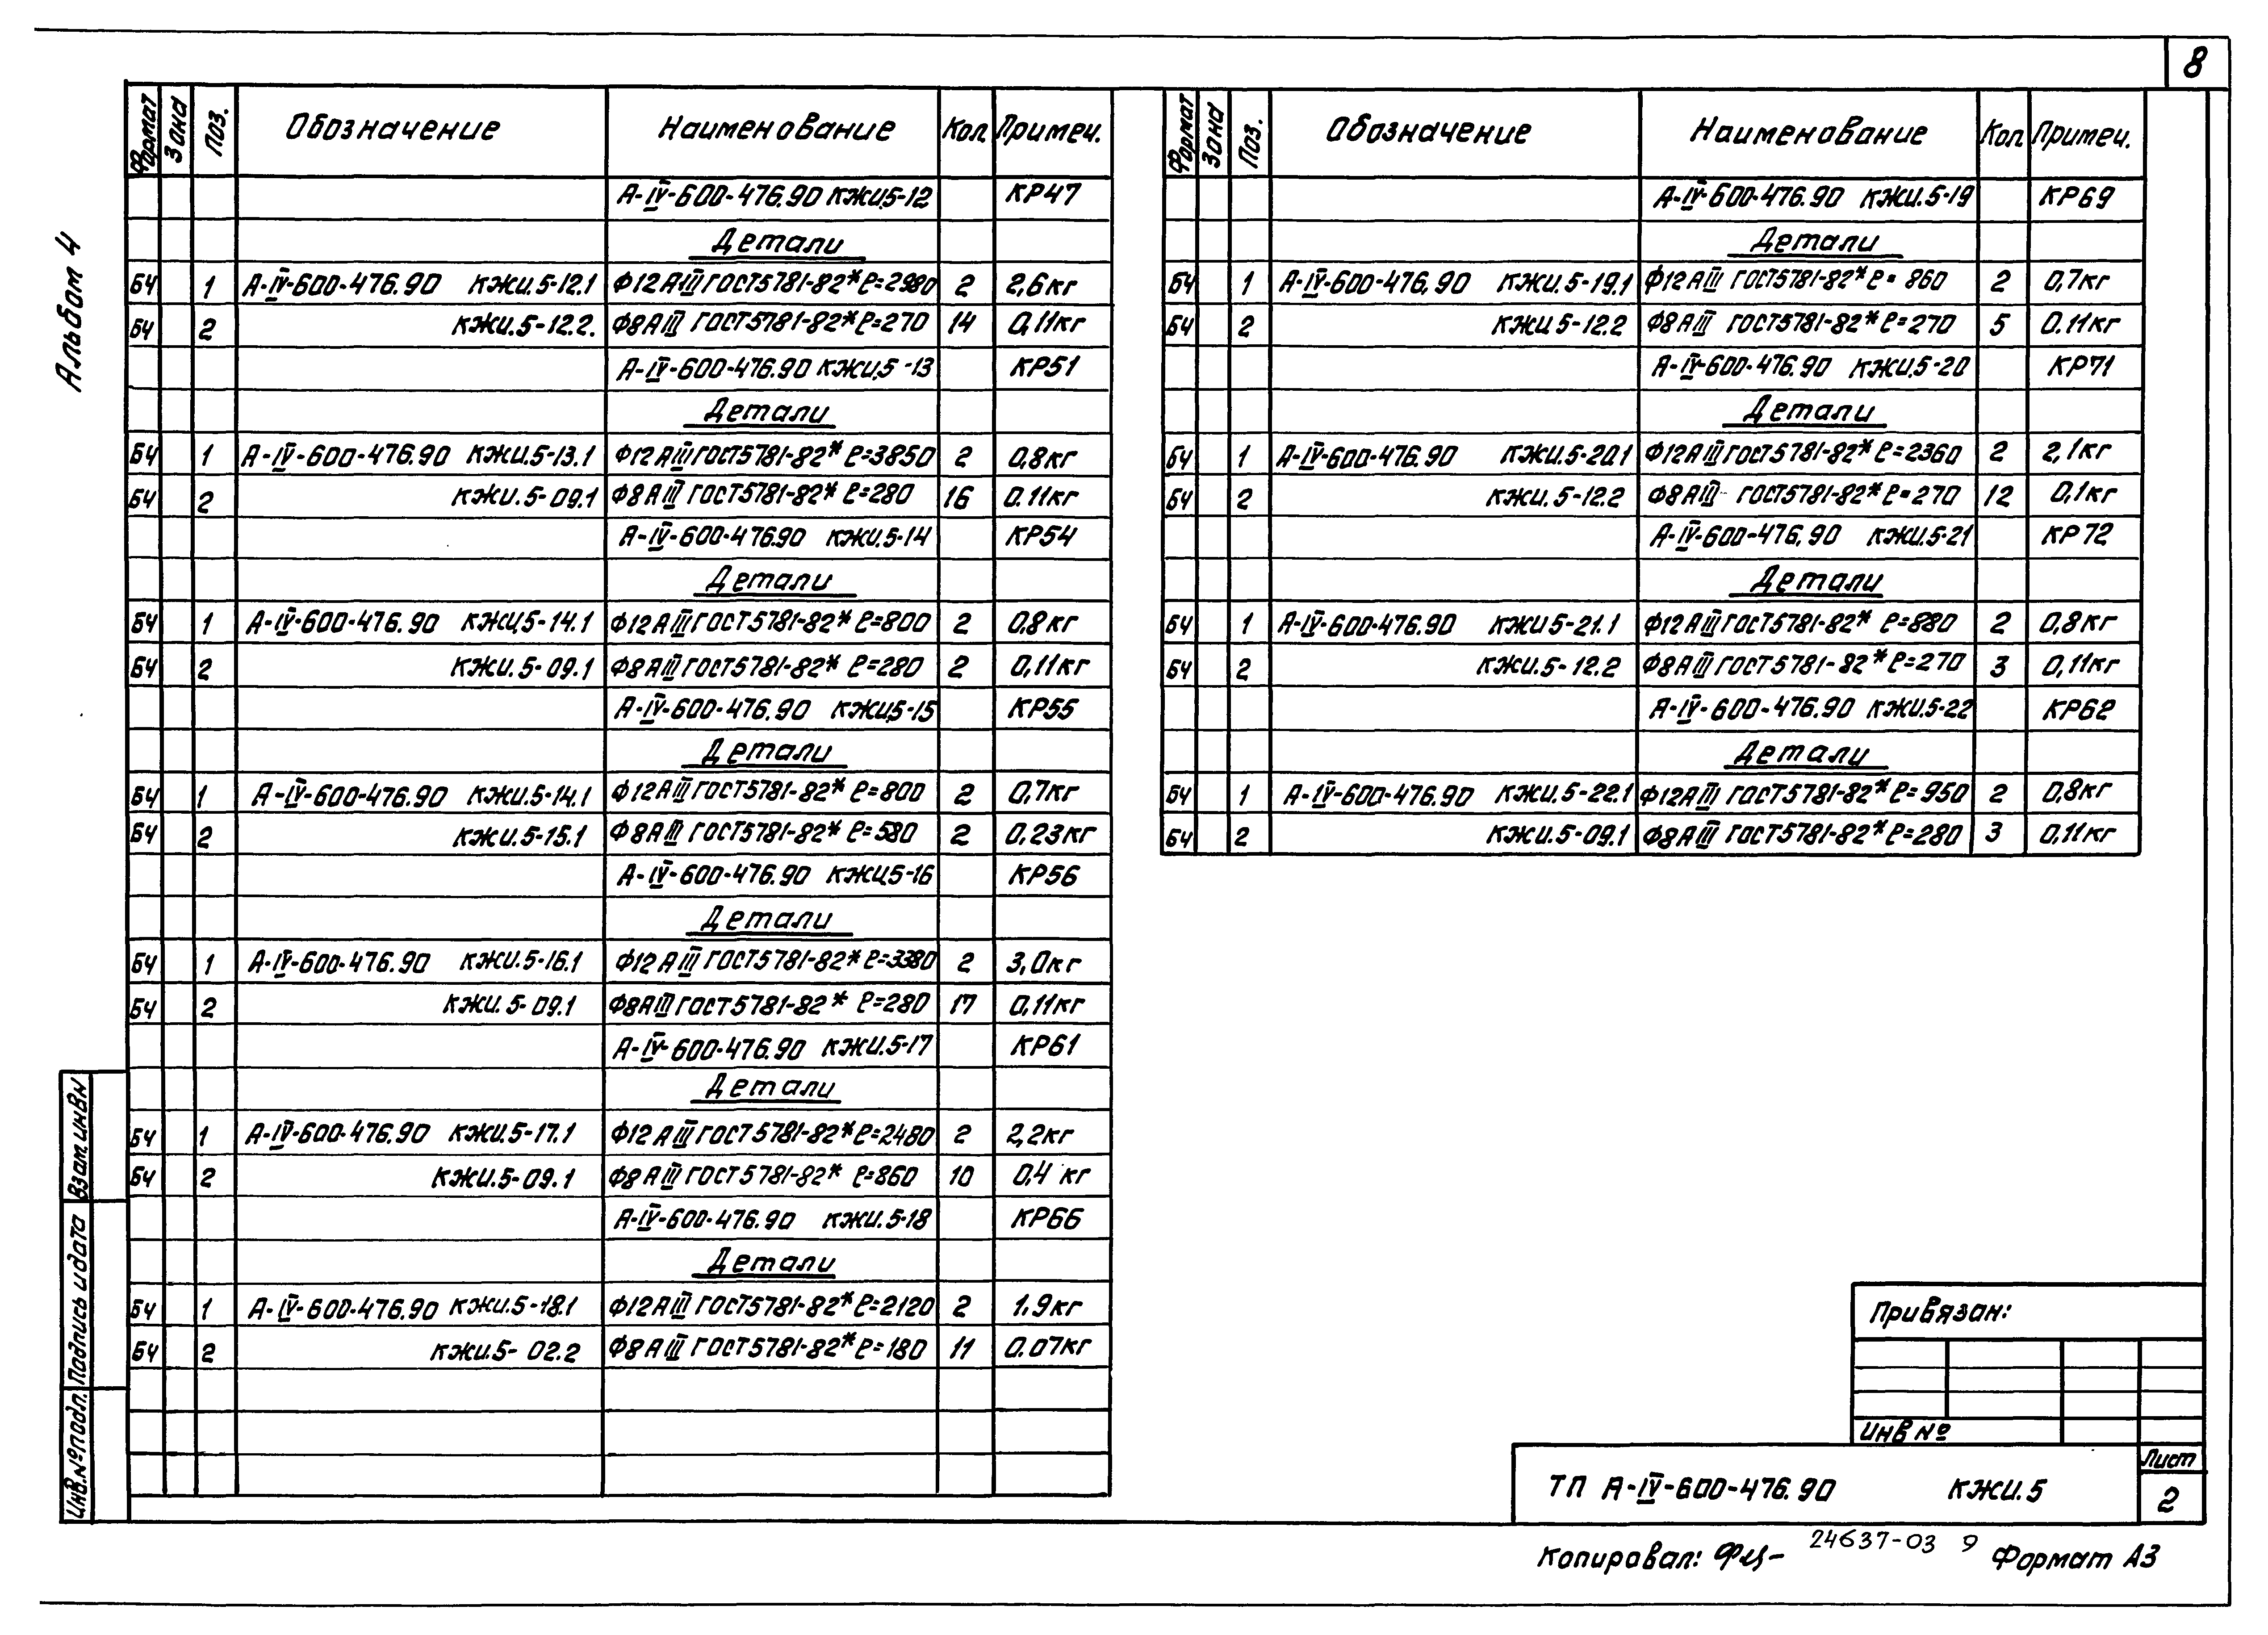 8
Альбом 4
Формат Зона Поз. Обозначение Наименование Кол. Примеч.
А-IV-600-476.90 КЖИ.5-12 КР47
Детали
БЧ 1 А-IV-600-476.90 КЖИ.5-12.1 Ф12АIII ГОСТ5781-82* ℓ=2980 2 2,6кг
БЧ 2 КЖИ.5-12.2. Ф8АIII ГОСТ5781-82* ℓ=270 14 0,11кг
А-IV-600-476.90 КЖИ.5-13 КР51
Детали
БЧ 1 А-IV-600-476.90 КЖИ.5-13.1 Ф12АIII ГОСТ5781-82* ℓ=3850 2 0,8кг
БЧ 2 КЖИ.5-09.1 Ф8АIII ГОСТ5781-82* ℓ=280 16 0.11кг
А-IV-600-476.90 КЖИ.5-14 КР54
Детали
БЧ 1 А-IV-600-476.90 КЖИ.5-14.1 Ф12АIII ГОСТ5781-82* ℓ=800 2 0,8кг
БЧ 2 КЖИ.5-09.1 Ф8АIII ГОСТ5781-82* ℓ=280 2 0,11кг
А-IV-600-476.90 КЖИ.5-15 КР55
Детали
БЧ 1 А-IV-600-476.90 КЖИ.5-14.1 Ф12АIII ГОСТ5781-82* ℓ=800 2 0,7кг
БЧ 2 КЖИ.5-15.1 Ф8АIII ГОСТ5781-82* ℓ=580 2 0,23кг
А-IV-600-476.90 КЖИ.5-16 КР56
Детали
БЧ 1 А-IV-600-476.90 КЖИ.5-16.1 Ф12АIII ГОСТ5781-82* ℓ=3380 2 3,0кг
БЧ 2 КЖИ.5-09.1 Ф8АIII ГОСТ5781-82* ℓ=280 17 0,11кг
А-IV-600-476.90 КЖИ.5-17 КР61
Детали
БЧ 1 А-IV-600-476.90 КЖИ.5-17.1 Ф12АIII ГОСТ5781-82* ℓ=2480 2 2,2кг
БЧ 2 КЖИ.5-09.1 Ф8АIII ГОСТ5781-82* ℓ=860 10 0,4 кг
А-IV-600-476.90 КЖИ.5-18 КР66
Детали
БЧ 1 А-IV-600-476.90 КЖИ.5-18.1 Ф12АIII ГОСТ5781-82* ℓ=2120 2 1.9кг
БЧ 2 КЖИ.5-02.2 Ф8АIII ГОСТ5781-82* ℓ=180 11 0.07кг
Формат Зона Поз. Обозначение Наименование Кол. Примеч.
А-IV-600-476.90 КЖИ.5-19 КР69
Детали
БЧ 1 А-IV-600-476,90 КЖИ.5-19.1 Ф12АIII ГОСТ5781-82* ℓ=860 2 0,7кг
БЧ 2 КЖИ 5-12.2 Ф8АIII ГОСТ5781-82* ℓ=270 5 0.11кг
А-IV-600-476.90 КЖИ.5-20 КР71
Детали
БЧ 1 А-IV-600-476.90 КЖИ.5-20.1 Ф12АIII ГОСТ5781-82* ℓ=2360 2 2,1кг
БЧ 2 КЖИ.5-12.2 Ф8АIII ГОСТ5781-82* ℓ=270 12 0,1кг
А-IV-600-476,90 КЖИ.5-21 КР72
Детали
БЧ 1 А-IV-600-476.90 КЖИ 5-21.1 Ф12АIII ГОСТ5781-82* ℓ=880 2 0,8кг
БЧ 2 КЖИ.5-12.2 Ф8АIII ГОСТ5781-82* ℓ=270 3 0,11кг
А-IV-600-476.90 КЖИ.5-22 КР62
Детали
БЧ 1 А-IV-600-476.90 КЖИ.5-22.1 Ф12АIII ГОСТ5781-82* ℓ=950 2 0,8кг
БЧ 2 КЖИ.5-09.1 Ф8АIII ГОСТ5781-82* ℓ=280 3 0,11кг
Взам.инвN
Подпись и дата
Инв.№подл.
Привязан:
Инв №
ТП А-IV-600-476.90 КЖИ.5
Лист
2
Копировал: Фц- 24637-03 9 Формат А3